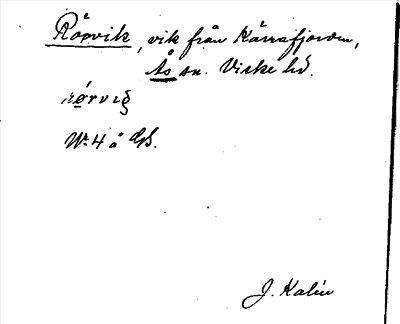 Rörvik, vik från Kärrafjorden,
Ås sn. Viske hd.
rǿrvig
Nr. 4 å GS.
J. Kalén